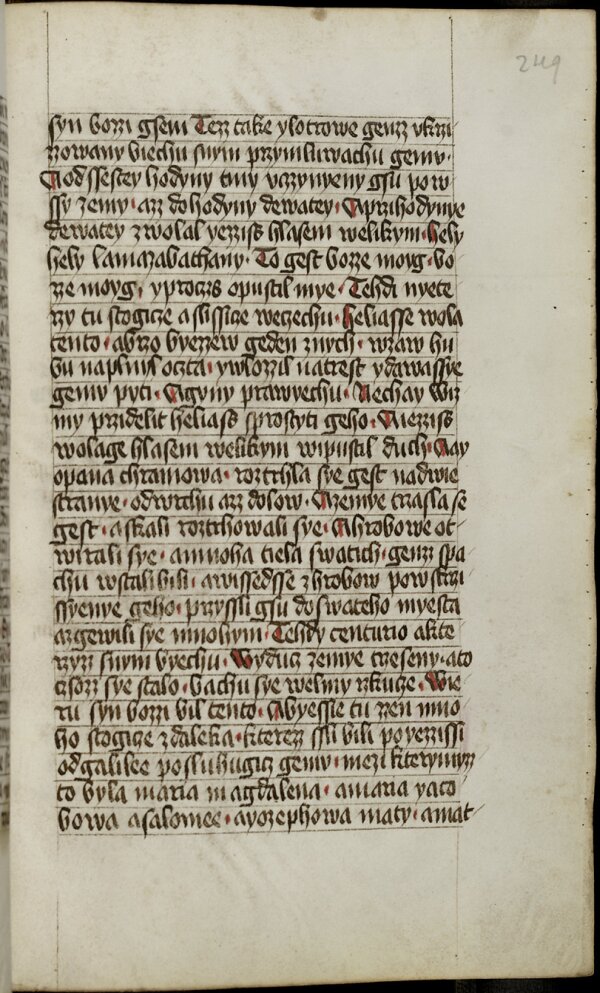 249
syn bozzi gsem Tezz take ylotrowe genzz vkrzi
zzowany biechu snym przymluwachu gemu·
A od ssestey hodyny tmy vczynyeny gsu pow
ssy zemy· azz do hodyny dewatey· A przihodynye
dewatey zwolal yezziss hlasem welikym· hely
hely lamazabathany· To gest bozze moyg· bo
ze moyg, yproczs opustil mye· Tehdi nyete
rzy tu stogicze a slissicze wecechu· heliasse wola
tento· abrzo byezzew geden znych· wzaw hu
bu naplnil oczta· ywlozzil natrest ydawassye
gemu pyti· A gyny prawyechu· Nechay wiz
my przidelit heliass sprostyti geho· A iezziss
wolage hlasem welikym wipustil duch· A ay
opana chramowa· roztrhla sye gest nadwie
stranye· odwrchu azz dolow· A zemye trasla se
gest· a skali roztrhowali sye· A hrobowe ot
wirali sye· amnoha tiela swatich· genzi spa
chu wstali bili· awissedsse zhrobow powskrzi
ssyenye geho· przyssli gsu doswateho myesta
azgewili sye mnohym· Tehdy centurio akte
rzyz snym byechu· Wyducz zemye trzeseny· ato
czsozz sye stalo· bachu sye welmy rzkucze· Wie
ru syn bozzi bil tento· A byessie tu zzen mno
ho stogicze zdaleka· kterezz ssli bili poyezzissi
odgalilee posluhugicz gemu· mezi kterymyzz
to byla maria magdalena· amaria yaco
bowa asalomee· ayozephowa maty· amat